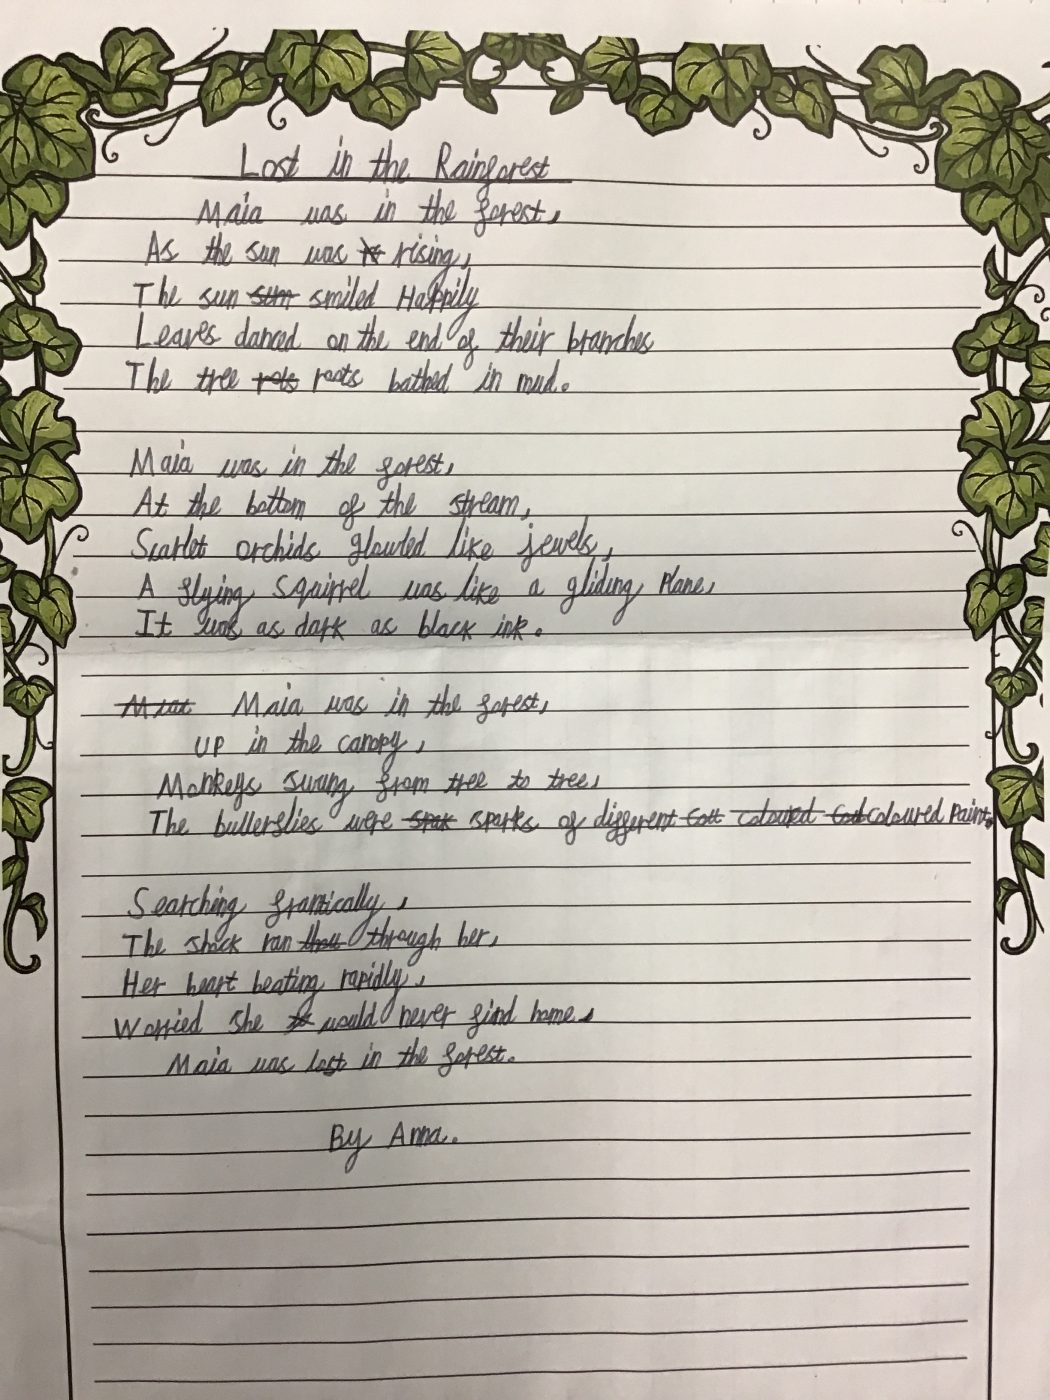 Lost in the Rainforest
Maia was in the forest,
As the sun was rising,
The sun smiled Happily
Leaves danced on the end of their branches
The tree roots bathed in mud.
Maia was in the forest,
At the bottom of the stream,
Scarlet orchids glowded like jewels,
A flying squirrel was like a gliding plane,
It was as dark as black ink.
Maia was in the forest,
UP in the canopy,
Monkeys swung from tree to tree,
The butterflies were sparks of different coloured paint.
Searching frantically,
The shock ran through her,
Her heart beating rapidly,
Worried she would never find home.
Maia was lost in the forest.
By Anna.